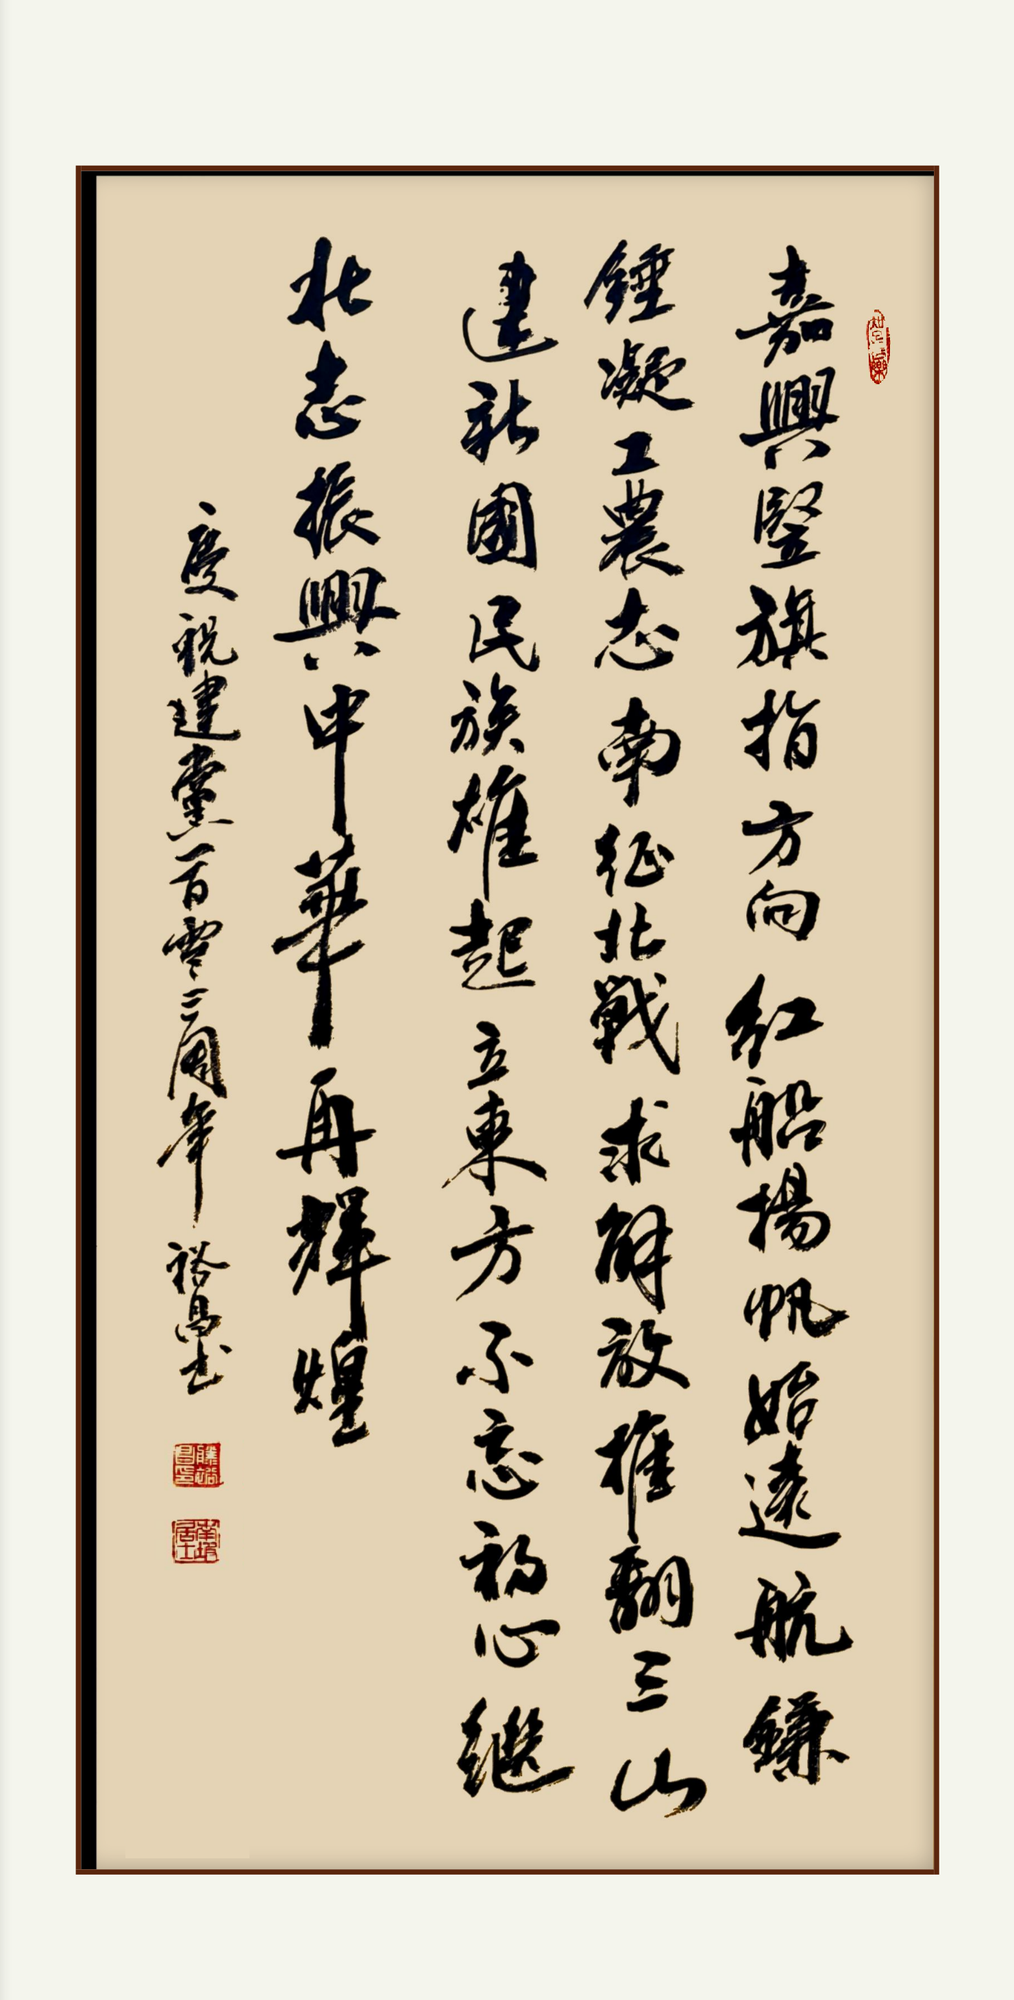 嘉興豎旗指方向紅船揚帆始遠航鐮
錘凝工農志南征北戰求解放推翻三山
建新國民族雄起立東方不忘初心繼
壯志振興中華再輝煌
慶祝建黨一百零三周年裕昌书